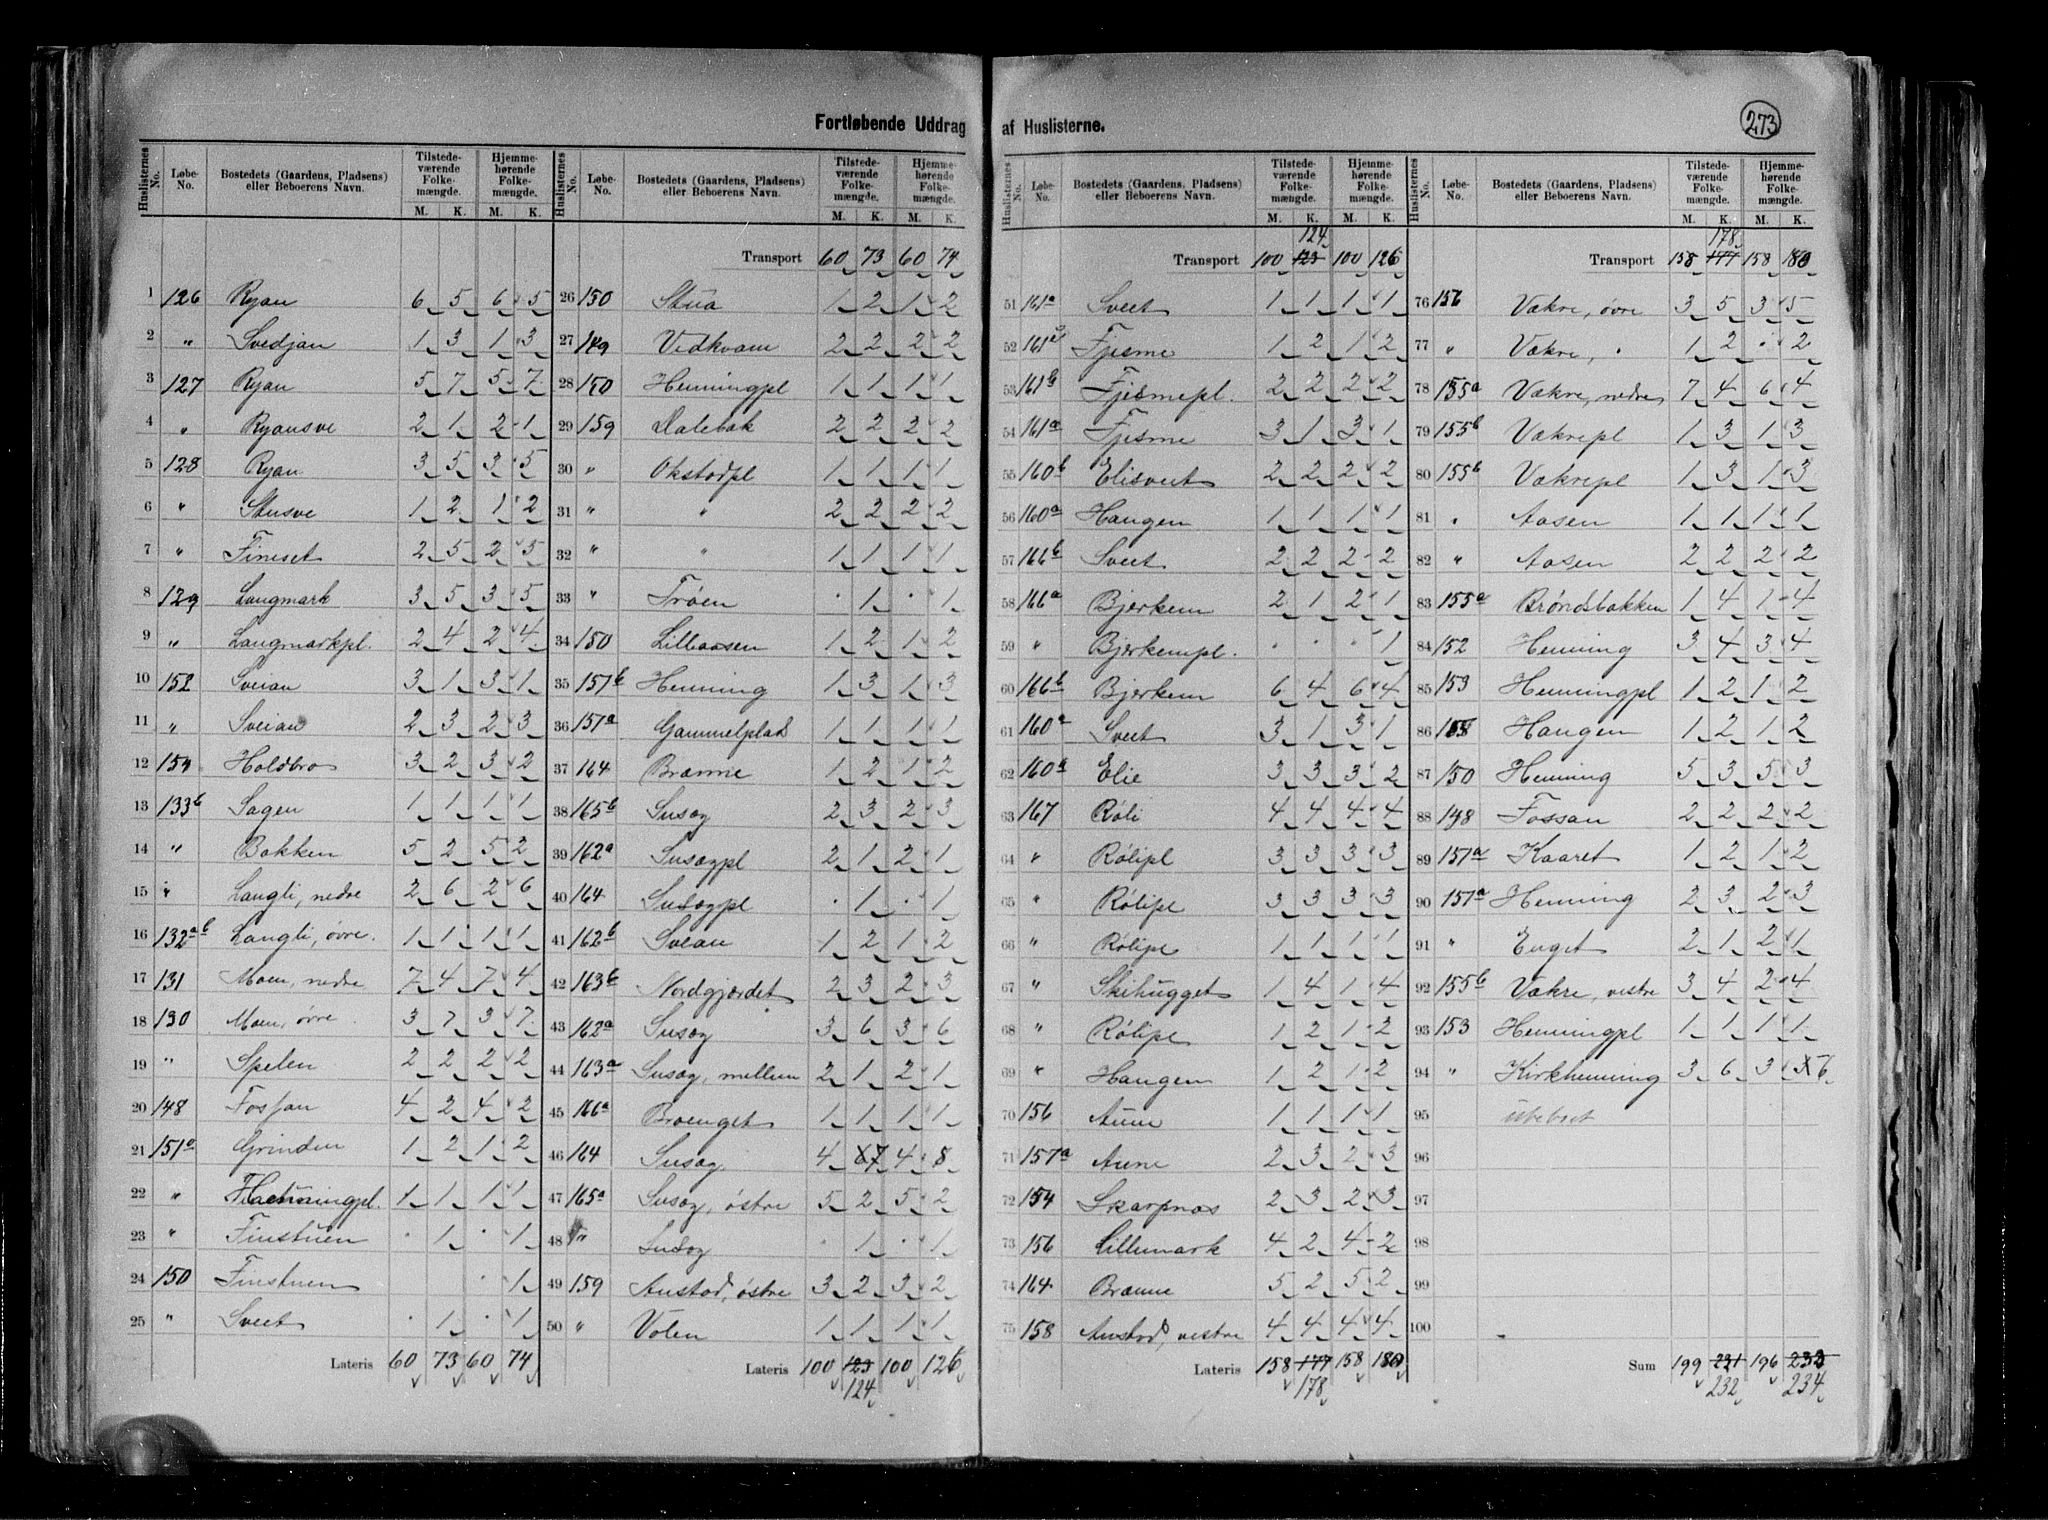 Fortløbende Uddrag af Huslisterne. 273
Huslisternes No. Løbe-No. Bostedets (Gaardens, Pladsens) eller Beboerens Navn. Tilstedeværende Folkemængde. M. K. Hjemmehørende Folkemængde. M. K.
1 126 Ryan 6 5 6 5
2 " Svedjan 1 3 1 3
3 127 Ryan 5 7 5 7
4 " Ryansve 2 1 2 1
5 128 Ryan 3 5 3 5
6 " Stusve 1 2 1 2
7 " Fineset 2 5 2 5
8 129 Langmark 3 5 3 5
9 " Langmarkpl. 2 4 2 4
10 152 Sveian 3 1 3 1
11 " Sveian 2 3 2 3
12 159 Holdbro 3 2 3 2
13 133b Sagen 1 1 1 1
14 " Bakken 5 2 5 2
15 " Langli, nedre 2 6 2 6
16 132ab Langli, øvre. 1 1 1 1
17 131 Moen, nedre 7 4 7 4
18 130 Moen, øvre. 3 7 3 7
19 " Spelen 2 2 2 2
20 148 Fossan 4 2 4 2
21 151a Grinden 1 2 1 2
22 " 1 1 1 1
23 " Finstuen . 1 . 1
24 150 Finstuen . 1
25 " Sveet . 1 . 1
Lateris 60 73 60 74
Huslisternes No. Løbe-No. Bostedets (Gaardens, Pladsens) eller Beboerens Navn. Tilstedeværende Folkemængde. M. K. Hjemmehørende Folkemængde. M. K.
Transport 60 73 60 74
26 150 Stua 1 2 1 2
27 149 Vedkvam 2 2 2 2
28 150 Henningpl 1 1 1 1
29 159 Dalebak 2 2 2 2
30 " Okstadpl 1 1 1 1
31 " " 2 2 2 2
32 " " 1 1 1 1
33 " Trøen . 1 . 1
34 150 Lillaasen 1 2 1 2
35 151b Henning 1 3 1 3
36 151a Gammelplads 1 1 1 1
37 164 Brænne 1 2 1 2
38 165b Susæg 2 3 2 3
39 162a Susægpl 2 1 2 1
40 164 Susægpl . 1 . 1
41 162b Sveian 1 2 1 2
42 163b Nordgjærdet 2 3 2 3
43 162a Susæg 3 6 3 6
44 163a Susæg, mellem 2 1 2 1
45 166a Broenget 1 1 1 1
46 164 Susæg 4 7 4 8
47 165a Susæg, østre 5 2 5 2
48 " Susæg . 1 . 1
49 159 Austad, østre 3 2 3 2
50 " Volen 1 1 1 1
Lateris 100 123 100 126
124
Huslisternes No. Løbe-No. Bostedets (Gaardens, Pladsens) eller Beboerens Navn. Tilstedeværende Folkemængde. M. K. Hjemmehørende Folkemængde. M. K.
124
Transport 100 123 100 126
51 161a Sveet 1 1 1 1
52 161a Fjesme 1 2 1 2
53 161b Fjesmepl. 2 2 2 2
54 161a Fjesme 3 1 3 1
55 160b Elisveet 2 2 2 2
56 160a Haugen 1 1 1 1
57 166b Sveet 2 2 2 2
58 166a Bjerkem 2 1 2 1
59 " Bjerkempl. . . . 1
60 166b Bjerkem 6 4 6 4
61 160a Sveet 3 1 3 1
62 160a Elie 3 3 3 2
63 167 Røli 4 4 4 4
64 " Rølipl 3 3 3 3
65 " Rølipl 3 3 3 3
66 " Rølipl 1 1 1 1
67 " Skihugget 1 4 1 4
68 " Rølipl 1 2 1 2
69 " Haugen 1 2 1 2
70 156 Aune 1 1 1 1
71 157a Aune 2 3 2 3
72 154 Skarpnæs 2 3 2 3
73 156 Lillemark 4 2 4 2
74 164 Brænne 5 2 5 2
75 158 Austad, vestre 4 4 4 4
Lateris 158 177 158 180
178
Huslisternes No. Løbe-No. Bostedets (Gaardens, Pladsens) eller Beboerens Navn. Tilstedeværende Folkemængde. M. K. Hjemmehørende Folkemængde. M. K.
178
Transport 158 177 158 180
76 156 Vækre, øvre 3 5 3 5
77 " Vækre, " 1 2 . 2
78 155a Vækre, nedre 7 4 6 4
79 155b Vækrepl 1 3 1 3
80 155b Vækrepl 1 3 1 3
81 " Aasen 1 1 1 1
82 " Aasen 2 2 2 2
83 155a Brøndsbakken 1 4 1 4
84 152 Henning 3 4 3 4
85 153 Henningpl 1 2 1 2
86 Haugen 1 2 1 2
87 150 Henning 5 3 5 3
88 148 Fossan 2 2 2 2
89 151a Kaaret 1 2 1 2
90 151a Henning 2 3 2 3
91 " Enget 2 1 2 1
92 155b Vækre, vestre 3 4 2 4
93 153 Henningpl 1 1 1 1
94 " Kirkhenning 3 6 3 6
95 ubeboet
96
97
98
99
100
Sum 199 231 196 233
232 234